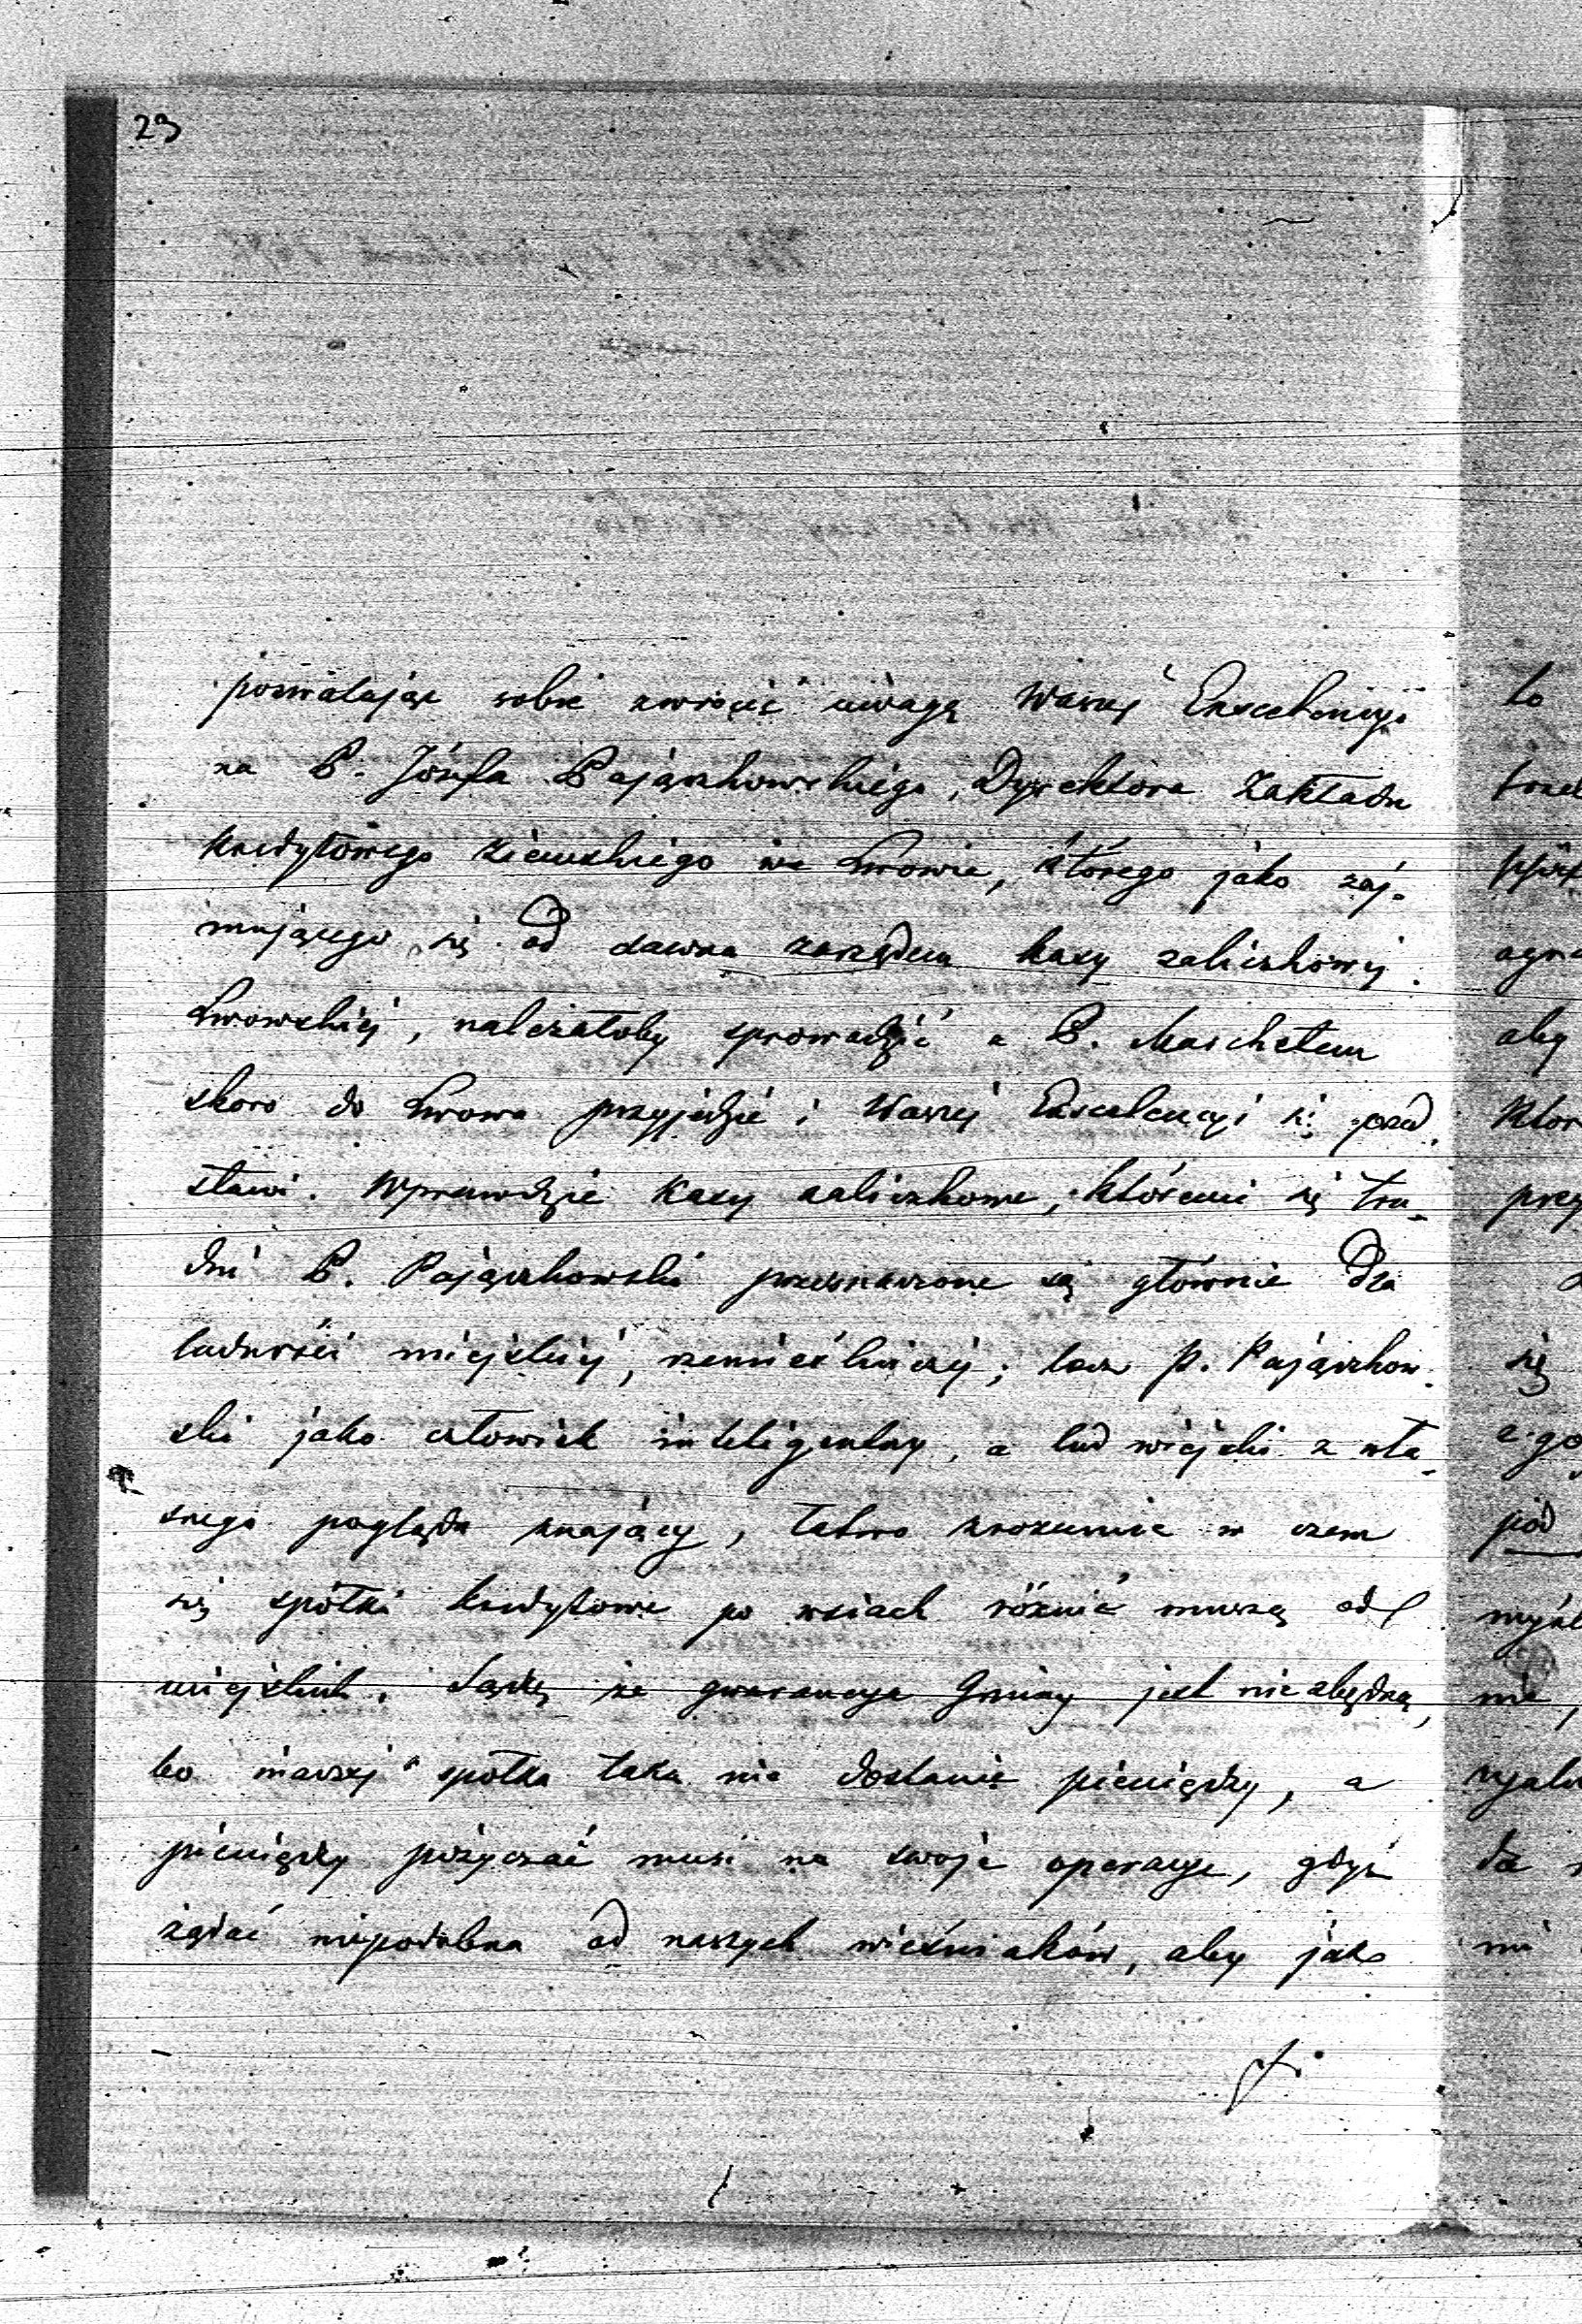 23
pozwalając sobie zwrócić uwagę Waszej Excelencyji
na P. Józefa Pajączkowskiego, Dyrektora Zakładu
kredytowego ziemskiego we Lwowie, którego jako zaj-
mującego się od dawna zarządem kasy zaliczkowej
Lwowskiej, należałoby sprowadzić z P.
skoro do Lwowa przyjedzie i Waszej Excelencyi się przed
stawi. Wprawdzie Kasy zaliczkowe, któremi się tru-
dni P. Pajączkowski przeznaczone są głównie dla
ludności miejskiej, rzemieślniczej; lecz p. Pajączkow-
ski jako człowiek inteligentny, a lud wiejski z wła-
snego poglądu znający, łatwo zrozumie w czem
się spółki kredytowe po wsiach różnić muszą od
miejskich. Sądzę że gwarancya Gminy jest niezbędną,
bo inaczej spółka taka nie dostanie pieniędzy, a
pieniędzy pożyczać musi na swoje operacye, gdyż
żądać niepodobna od naszych wieśniaków, aby jak
to
się
pod